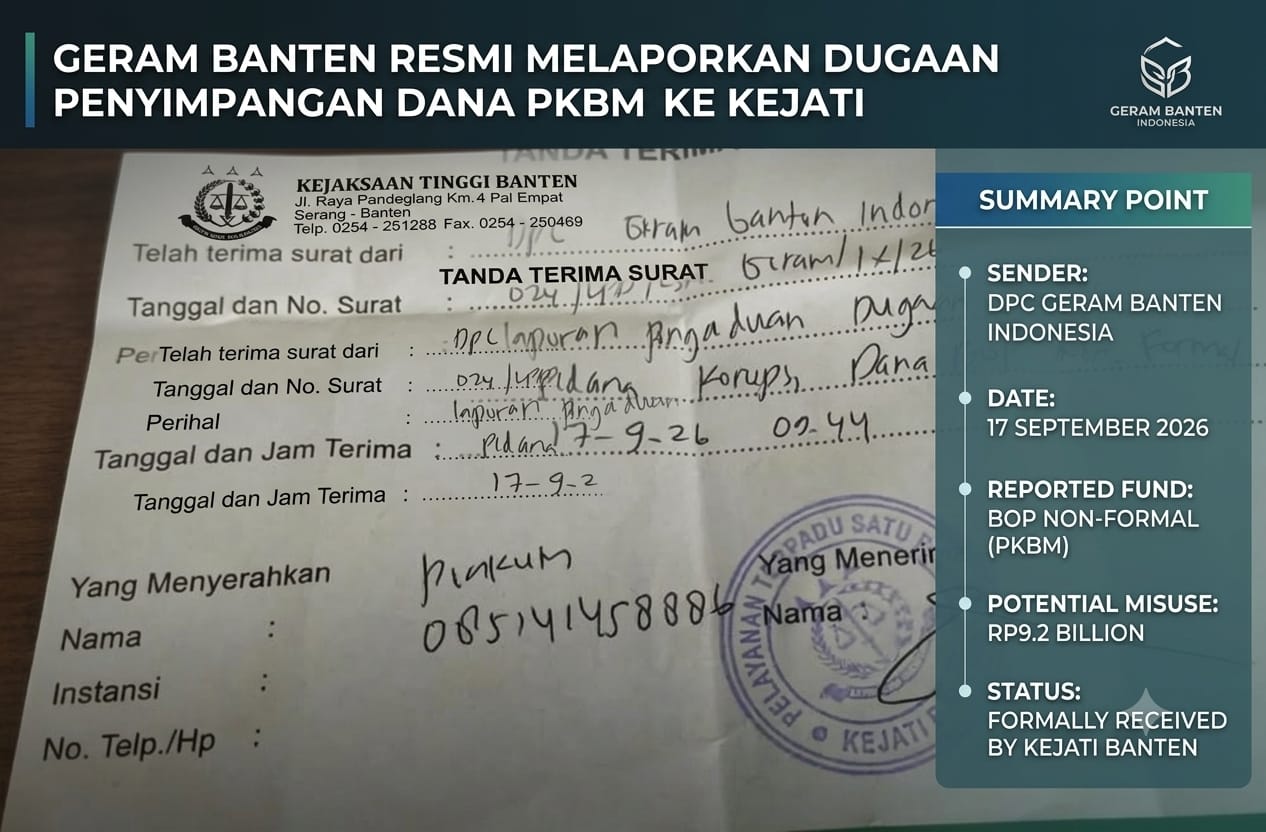 GERAM BANTEN RESMI MELAPORKAN DUGAAN
PENYIMPANGAN DANA PKBM KE KEJATI
GERAM BANTEN
INDONESIA
TANDA TERIMA
KEJAKSAAN TINGGI BANTEN
Jl. Raya Pandeglang Km.4 Pal Empat
Serang - Banten
Telp. 0254 - 251288 Fax. 0254 - 250469
Telah terima surat dari : DPC Geram Banten Indon
TANDA TERIMA SURAT
Tanggal dan No. Surat : 024 Geram/IX/26
Telah terima surat dari : DPC laporan Pngaduan Duga
Tanggal dan No. Surat : 024 Pidana Korupsi Dana
Perihal : laporan Pngaduan
Tanggal dan Jam Terima : Pidana 17-9-26 09-44
Tanggal dan Jam Terima : 17-9-2
Yang Menyerahkan
Nama :
Instansi :
No. Telp./Hp :
085141458886
Yang Menerim
Nama :
PELAYANAN TERPADU SATU
KEJATI
SUMMARY POINT
SENDER:
DPC GERAM BANTEN
INDONESIA
DATE:
17 SEPTEMBER 2026
REPORTED FUND:
BOP NON-FORMAL
(PKBM)
POTENTIAL MISUSE:
RP9.2 BILLION
STATUS:
FORMALLY RECEIVED
BY KEJATI BANTEN